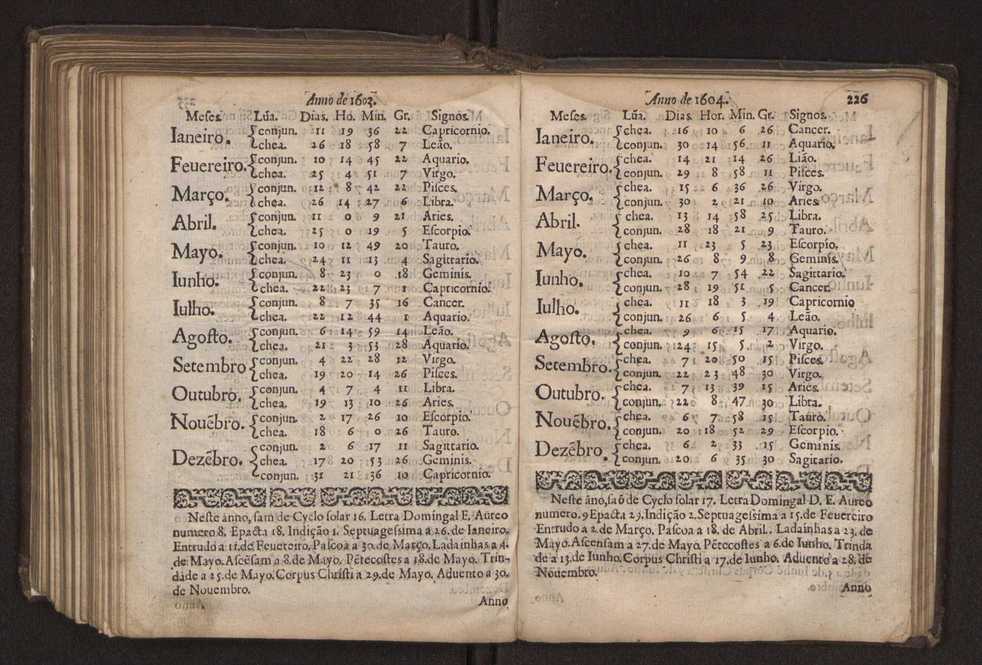 Anno de 1603.
Meses. Lũa. Dias. Ho. Min. Gr. Signos.
Ianeiro. conjun. 11 19 36 22 Capricornio.
chea. 26 18 58 7 Leão.
Feuereiro. conjun. 10 14 45 22 Aquario.
chea. 25 4 51 7 Virgo.
Março. conjun. 12 8 42 22 Pisces.
chea. 26 14 27 6 Libra.
Abril. conjun. 11 0 9 21 Aries.
chea. 25 0 19 5 Escorpio.
Mayo. conjun. 10 12 49 20 Tauro.
chea. 24 11 13 4 Sagittario.
Iunho. conjun. 8 23 0 18 Geminis.
chea. 22 23 7 1 Capricornio.
Iulho. conjun. 8 7 35 16 Cancer.
chea. 22 12 44 1 Aquario.
Agosto. conjun. 6 14 59 14 Leão.
chea. 21 3 53 28 Aquario.
Setembro conjun. 4 22 28 12 Virgo.
chea. 19 20 14 26 Pisces.
Outubro. conjun. 4 7 4 11 Libra.
chea. 19 13 10 26 Aries.
Nouẽbro. conjun. 2 17 26 10 Escorpio.
chea. 18 6 0 26 Tauro.
Dezẽbro. conjun. 2 6 17 11 Sagittario.
chea. 17 20 53 26 Geminis.
conjun. 31 21 36 10 Capricornio.
Neste anno, sam de Cyclo solar 16. Letra Domingal E. Aureo
numero. 8. Epacta 18. Indição 1. Septuagessima a 26. de Ianeiro.
Entrudo a 11. de Feuereiro. Pascoa a 30. de Março. Ladainhas a 4.
de Mayo. Ascẽsam a 8. de Mayo. Pẽtecostes a 18. de Mayo. Trin-
dade a 25. de Mayo. Corpus Christi a 29. de Mayo, Aduento a 30.
de Nouembro.
Anno
Anno de 1604. 226
Meses. Lũa. Dias. Hor. Min. Gr. Signos.
Ianeiro. chea. 16 10 6 26 Cancer.
conjun. 30 14 56 11 Aquario.
Feuereiro. chea. 14 21 14 26 Lião.
conjun. 29 8 58 11 Pisces.
Março. chea. 15 6 36 26 Virgo.
conjun. 30 2 21 10 Aries.
Abril. chea. 13 14 58 25 Libra.
conjun. 28 18 21 9 Tauro.
Mayo. chea. 11 23 5 23 Escorpio.
conjun. 26 8 9 8 Geminis.
Iunho. chea. 10 7 54 22 Sagittario.
conjun. 28 19 51 5 Cancer.
Iulho. chea. 11 18 3 19 Capricornio
conjun. 26 6 5 4 Leão.
Agosto. chea. 9 6 15 17 Aquario.
conjun. 24 15 5 2 Virgo.
Setembro. chea. 7 20 50 15 Pisces.
conjun. 22 23 48 30 Virgo.
Outubro. chea. 7 13 39 15 Aries.
conjun. 22 8 47 30 Libra.
Nouẽbro. chea. 6 7 58 15 Tauro.
conjun. 20 18 52 29 Escorpio.
Dezẽbro. chea. 6 2 33 15 Geminis.
conjun. 20 6 35 30 Sagitario.
Neste ãno, saõ de Cyclo solar 17. Letra Domingal D. E. Aureo
numero. 9 Epacta 29. Indição 2. Septuagessima a 15. de Feuereiro
Entrudo a 2. de Março. Pascoa a 18. de Abril. Ladainhas a 23. de
Mayo. Ascensam a 27. de Mayo. Pẽtecostes a 6. de Iunho. Trinda
de a 13. de Iunho. Corpus Christi a 17. de Iunho. Aduento a 28. de
Nouembro.
Anno